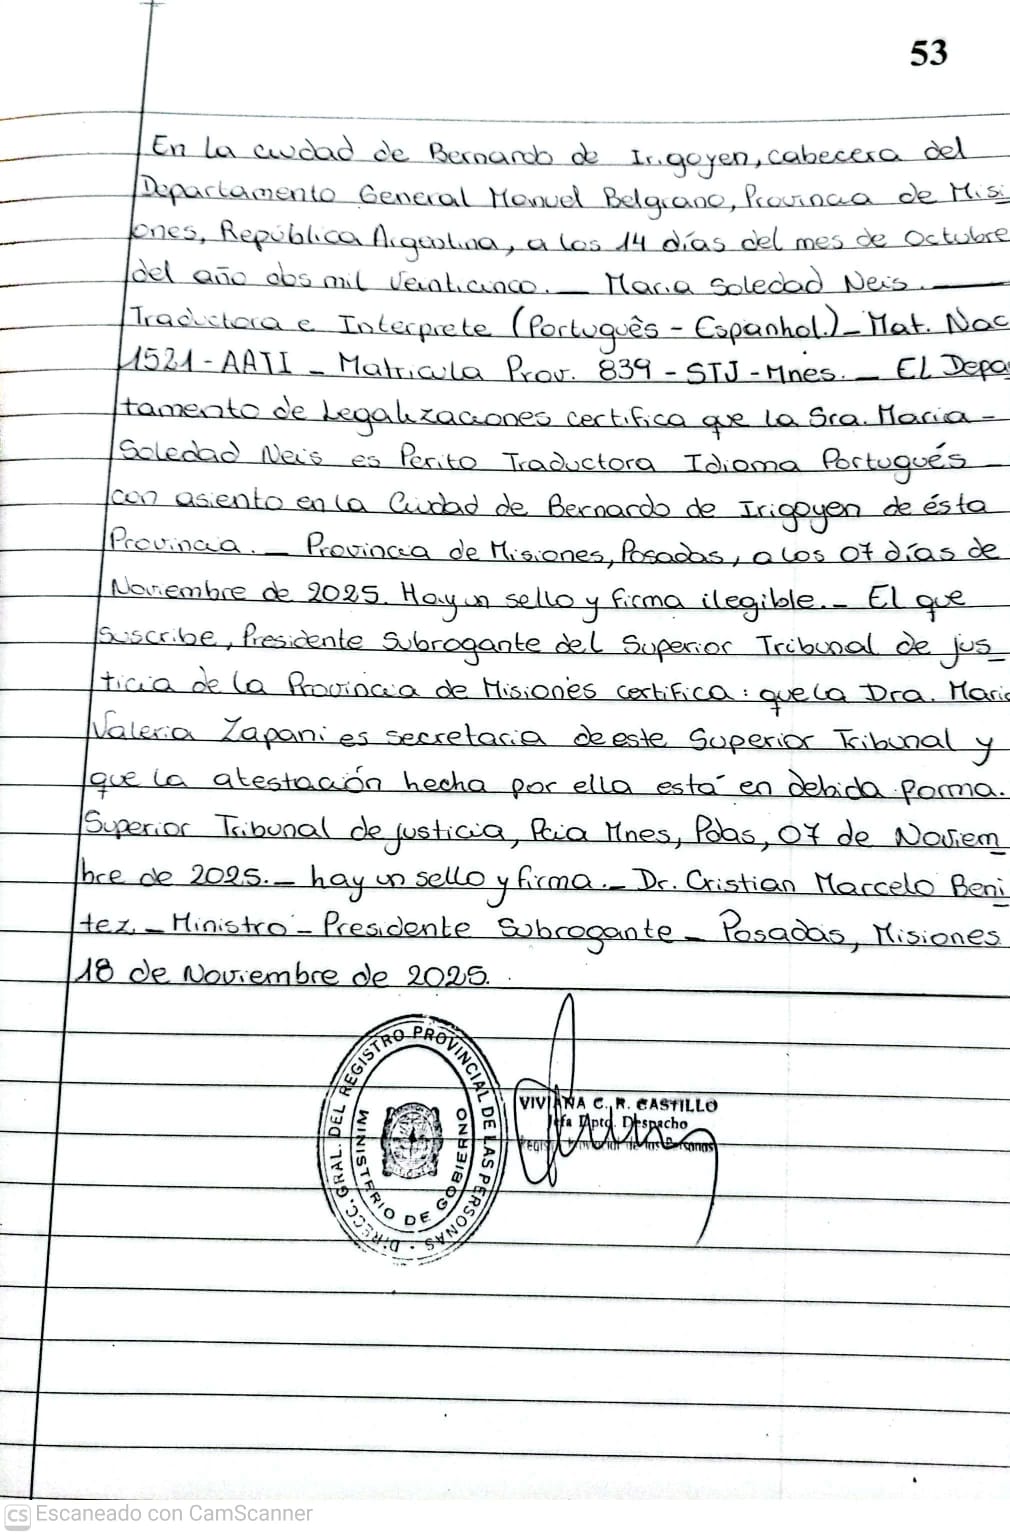 53
En la ciudad de Bernardo de Irigoyen, cabecera del
Departamento General Manuel Belgrano, Provincia de Misi
ones, República Argentina, a los 14 días del mes de Octubre
del año dos mil Veinticinco. — Maria Soledad Neis. —
Traductora e Interprete (Portuguès - Espanhol.) - Mat. Nac
1521 - AATI - Matricula Prov. 839 - STJ - Mnes. - El Depar
tamento de Legalizaciones certifica que la Sra. Maria -
Soledad Neis es Perito Traductora Idioma Portugués -
con asiento en la Ciudad de Bernardo de Irigoyen de ésta
Provincia. - Provincia de Misiones, Posadas, a los 07 días de
Noviembre de 2025. Hay un sello y firma ilegible. - El que
suscribe, Presidente Subrogante del Superior Tribunal de jus
ticia de la Provincia de Misiones certifica: que la Dra. Maria
Valeria Zapani es secretaria de este Superior Tribunal y
que la atestación hecha por ella está en debida forma.
Superior Tribunal de justicia, Pcia Mnes, Pdas, 07 de Noviem
bre de 2025. - hay un sello y firma. - Dr. Cristian Marcelo Beni
tez - Ministro - Presidente Subrogante - Posadas, Misiones
18 de Noviembre de 2025.
DIRECC. GRAL. DEL REGISTRO PROVINCIAL DE LAS PERSONAS
MINISTERIO DE GOBIERNO
VIVIANA C. R. CASTILLO
Jefa Dpto. Despacho
Regist Provincial de las Personas
CS Escaneado con CamScanner